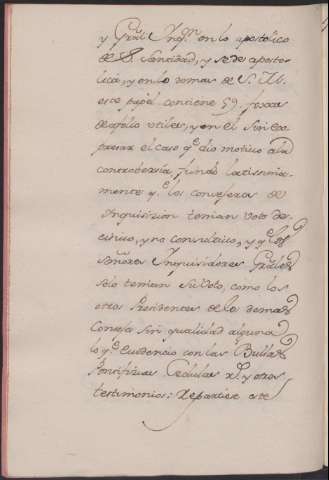 y Gràl Inqq.ʳ en lo apostolico
de S. Santidad, y sede aposto-
lica, y en lo demas de S. M.
este papel contiene 59. foxas
de afolio utiles, y en el sin ex-
presar el caso q.ᵉ dio motivo a la
controbersia, fundò latissima-
mente q.ᵉ los consejeros de
Inquisizion tenian voto de-
cisivo, y no consultivo, y q.ᵉ los
señores Inquisidores Grales
solo tenian su voto, como los
otros Presidentes de lo demas
Consejos sin qualidad alguna
lo q.ᵉ evidencio con las Bullas
Pontifizias Cedulas Rˢ. y otros
testimonios: Repartiose este